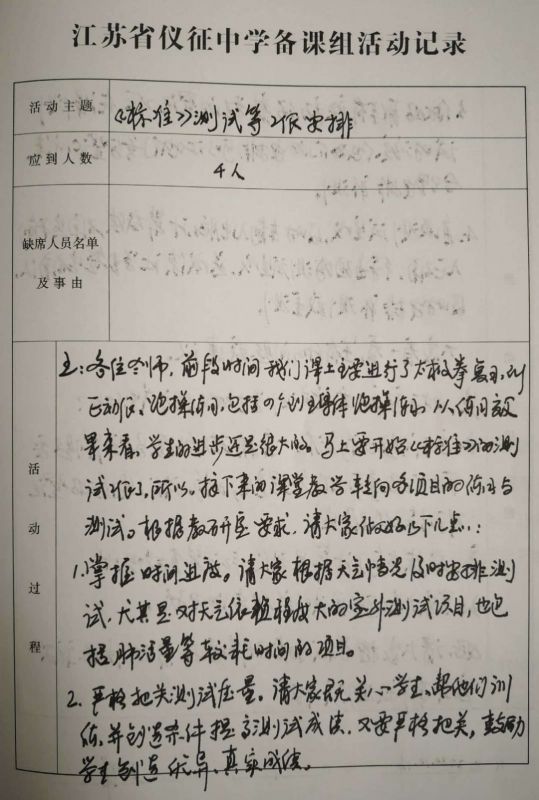 江苏省仪征中学备课组活动记录
活动主题
《标准》测试等工作安排
应到人数
4人
缺席人员名单
及事由
活动过程
主:各位老师,前段时间我们课上主要进行了太极拳复习,
跑操练习,包括 跑操练习,从练习效
果来看,学生的进步还是很大的。马上要开始《标准》的测
试工作了,所以,接下来的课堂教学转向各项目的练习与
测试。根据教研室要求,请大家做好以下几点:
1.掌握时间进度。请大家根据天气情况及时安排测
试,尤其是对天气依赖程度大的室外测试项目,也包
括肺活量等较耗时间的项目。
2.严格把关测试质量。请大家既关心学生、帮他们训
练,并创造条件提高测试成绩,又要严格把关,鼓励
学生创造优异、真实成绩。